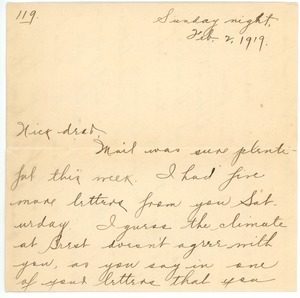 119.
Sunday night,
Feb. 2, 1919.
Nick dear,
Mail was sure plenti-
ful this week. I had five
more letters from you Sat-
urday. I guess the climate
at Brest doesn't agree with
you, as you say in one
of your letters that you